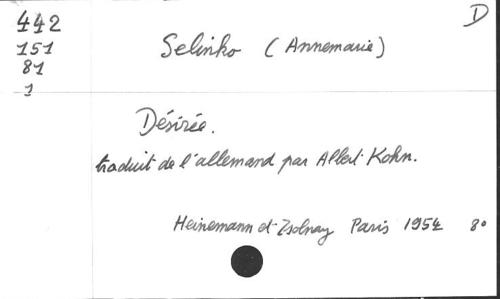 442
D
151
Selinko (Annemarie)
81
1
Désirée.
traduit de l'allemand par Albert Kohn.
Heinemann et Zsolnay Paris 1954 8o